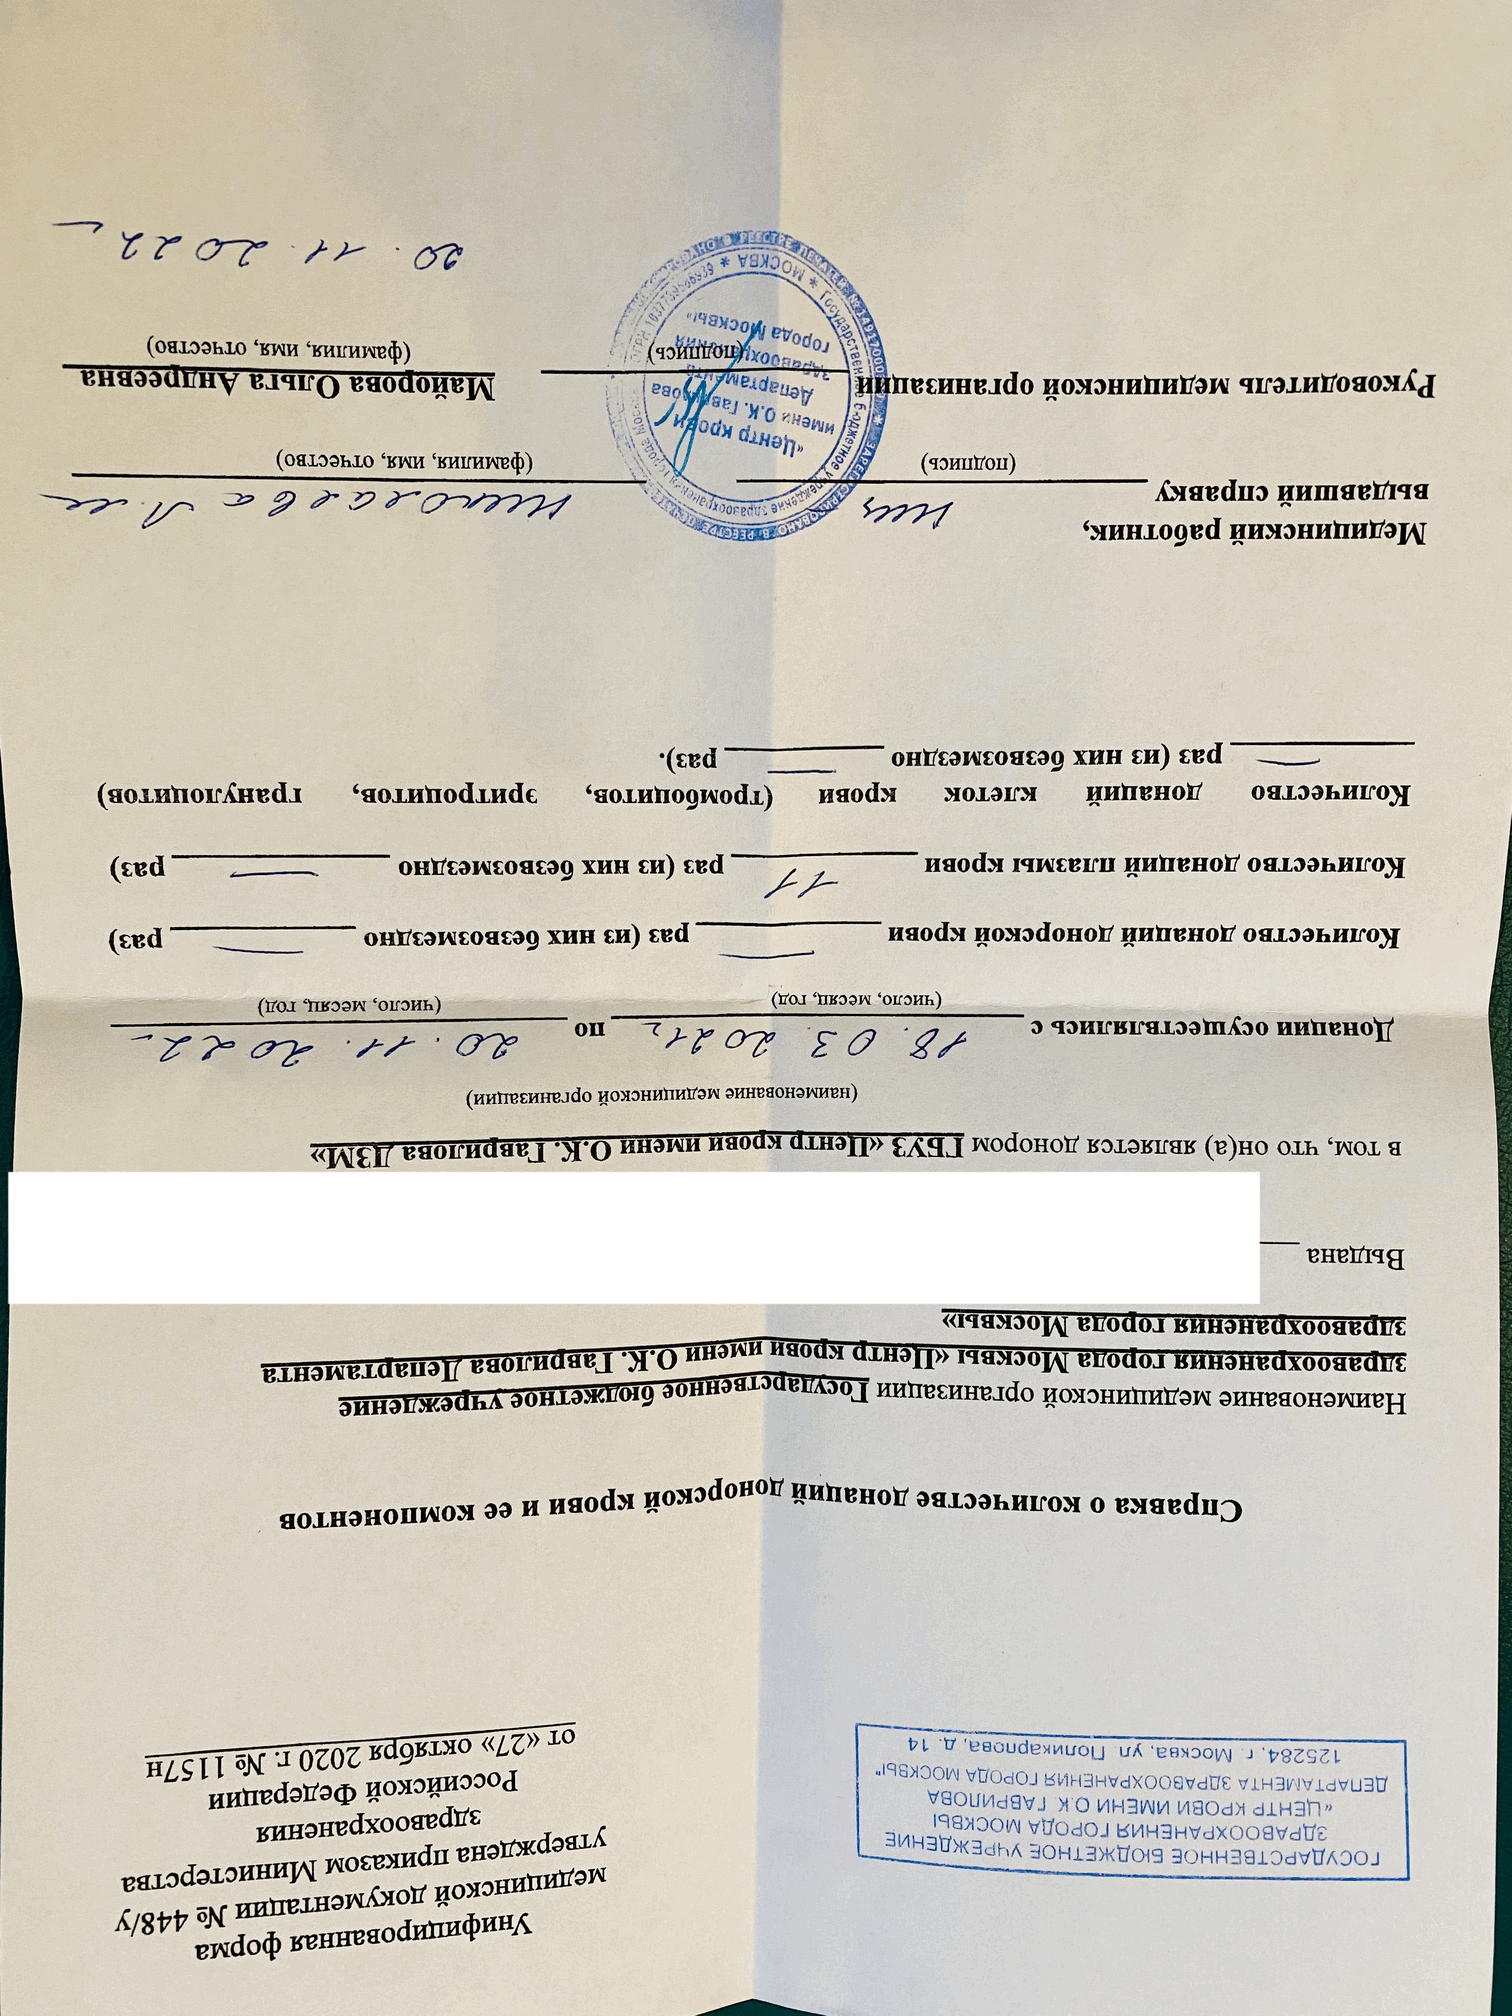 ГОСУДАРСТВЕННОЕ БЮДЖЕТНОЕ УЧРЕЖДЕНИЕ
ЗДРАВООХРАНЕНИЯ ГОРОДА МОСКВЫ
"ЦЕНТР КРОВИ ИМЕНИ О.К. ГАВРИЛОВА
ДЕПАРТАМЕНТА ЗДРАВООХРАНЕНИЯ ГОРОДА МОСКВЫ"
125284, г. Москва, ул. Поликарпова, д. 14
Унифицированная форма
медицинской документации № 448/у
утверждена приказом Министерства
здравоохранения
Российской Федерации
от «27» октября 2020 г. № 1157н
Справка о количестве донаций донорской крови и ее компонентов
Наименование медицинской организации Государственное бюджетное учреждение
здравоохранения города Москвы «Центр крови имени О.К. Гаврилова Департамента
здравоохранения города Москвы»
Выдана
в том, что он(а) является донором ГБУЗ «Центр крови имени О.К. Гаврилова ДЗМ»
(наименование медицинской организации)
Донации осуществлялись с 18.03.2021г по 20.11.2022
(число, месяц, год) (число, месяц, год)
Количество донаций донорской крови — раз (из них безвозмездно — раз)
Количество донаций плазмы крови 11 раз (из них безвозмездно — раз)
Количество донаций клеток крови (тромбоцитов, эритроцитов, гранулоцитов)
— раз (из них безвозмездно — раз).
Медицинский работник,
выдавший справку Николаева
(подпись) (фамилия, имя, отчество)
Руководитель медицинской организации Майорова Ольга Андреевна
(подпись) (фамилия, имя, отчество)
20.11.2022
«Центр крови
имени О.К. Гаврилова
Департамента
здравоохранения
города Москвы»
* МОСКВА *